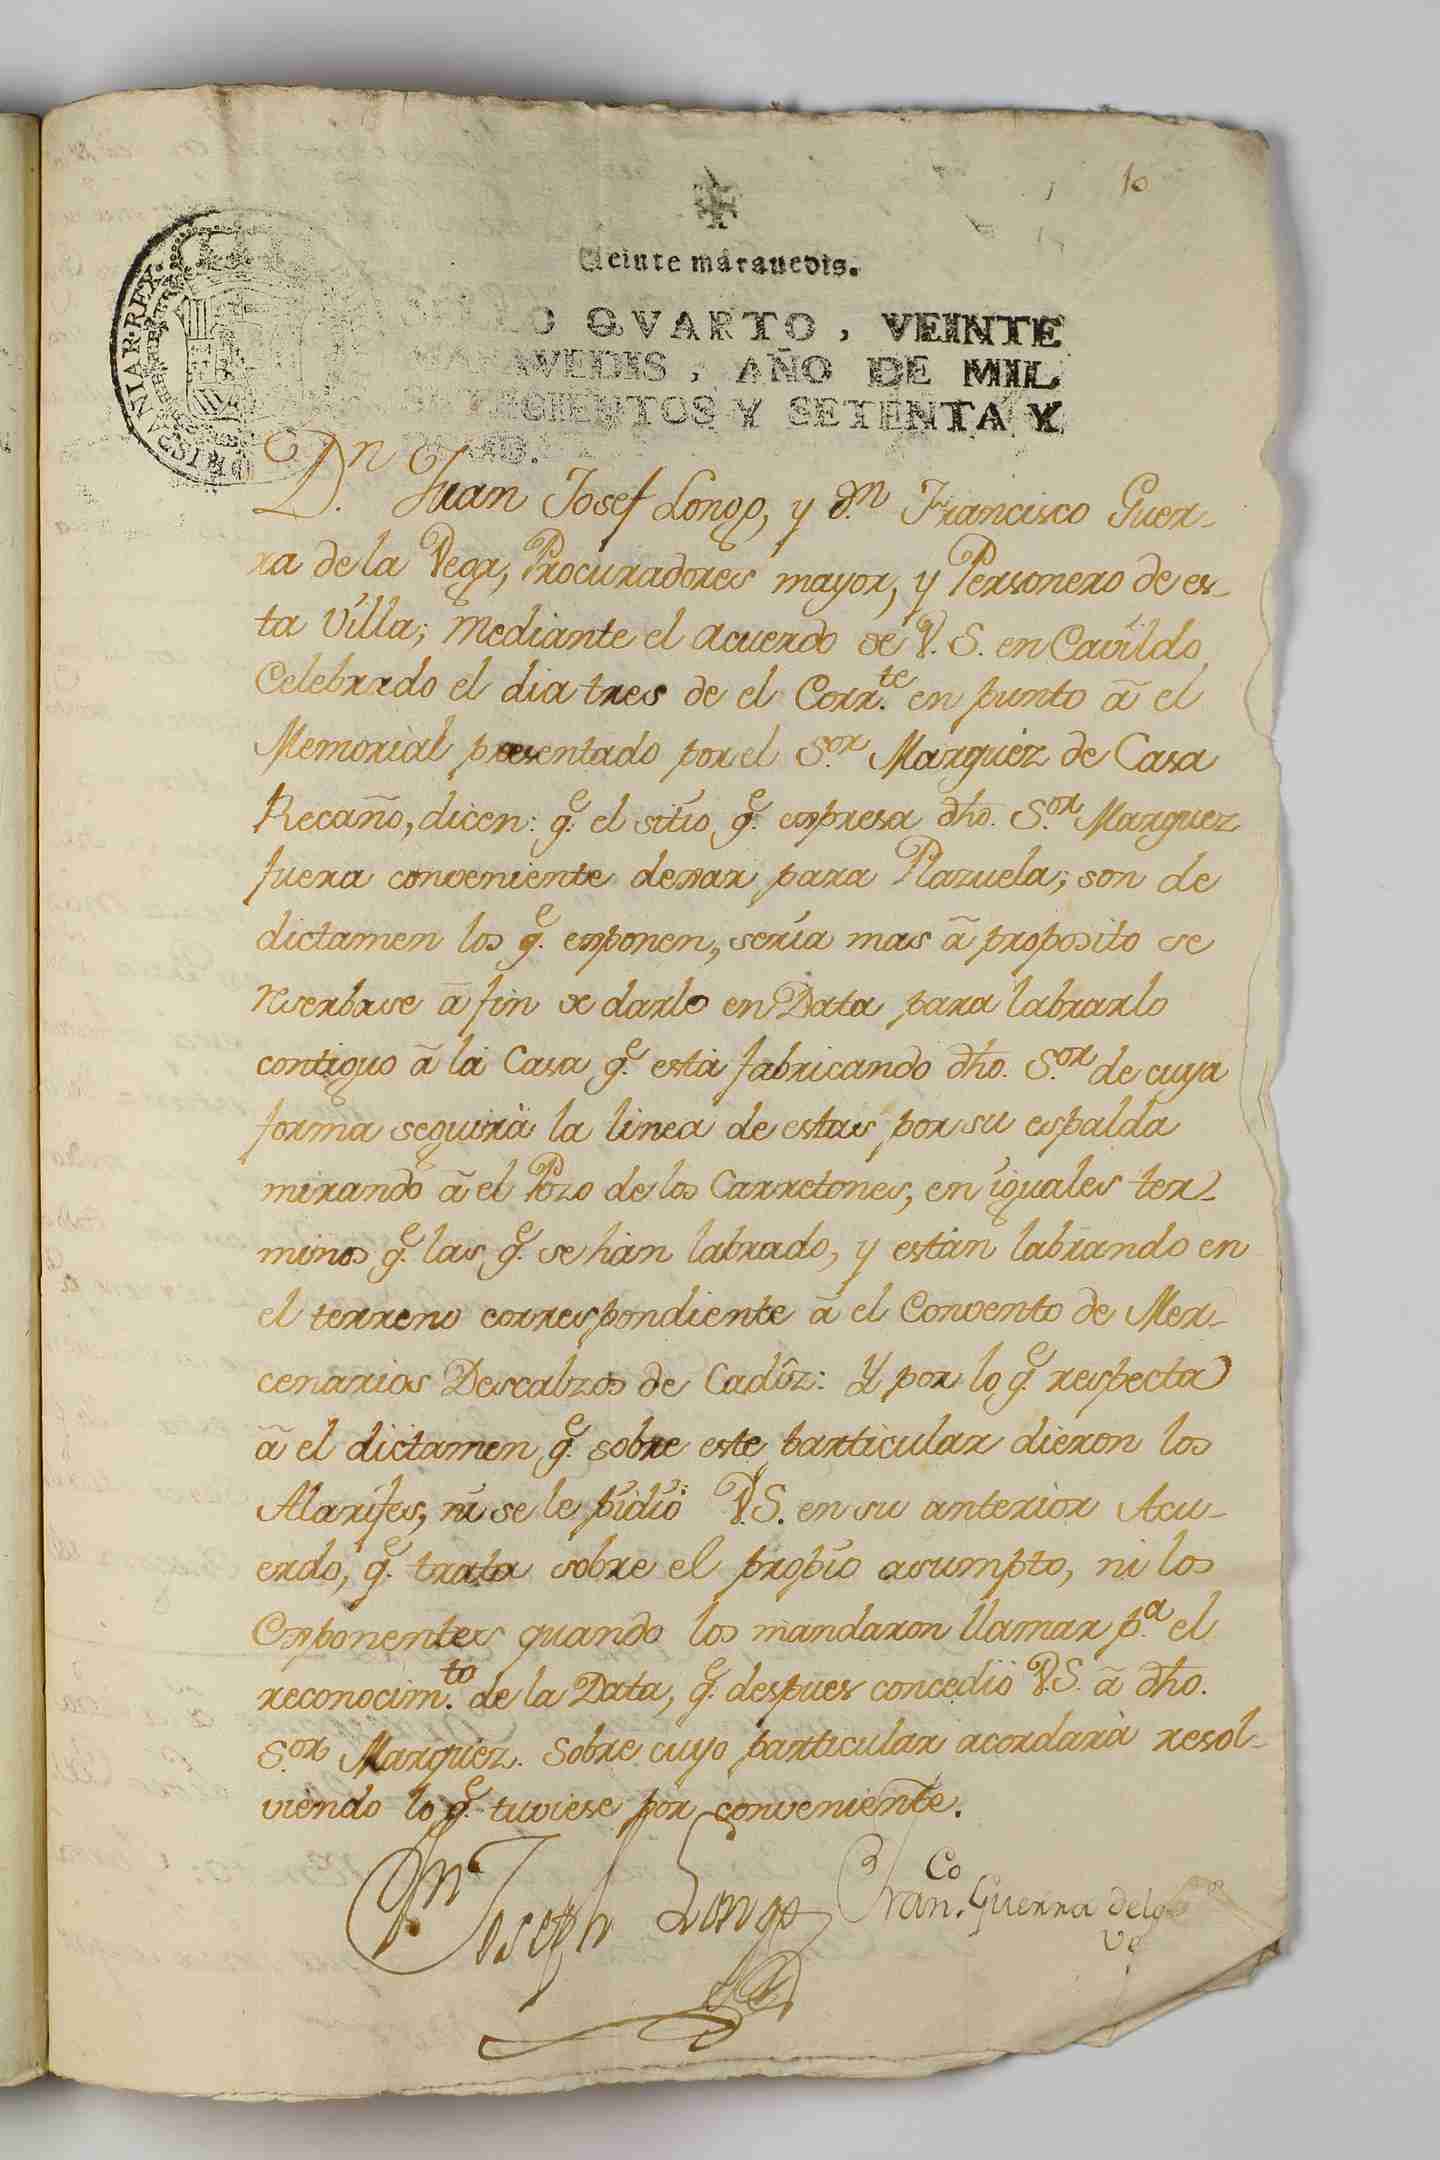 10
Veinte maravedis.
SELLO QVARTO, VEINTE
MARAVEDIS, AÑO DE MIL
SETECIENTOS Y SETENTA Y
HISPANIAR·REX·
D.n Juan Josef Longo, y d.n Francisco Guer-
ra de la Vega, Procuradores mayor, y Personero de es-
ta Villa; mediante el acuerdo de V. S. en Cavildo
Celebrado el dia tres de el Corr.te en punto â el
Memorial presentado por el S.or Marquéz de Casa
Recaño, dicen: q.e el sitio q.e expresa dho. S.or Marquez
fuera conveniente dexar para Plazuela; son de
dictamen los q.e exponen, sería mas â proposito se
reserbase â fin de darlo en Data para labrarlo
contiguo â la Casa q.e está fabricando dho. S.or de cuya
forma seguirà la linea de estas por su espalda
mirando â el Pozo de los Carretones, en iguales ter-
minos q.e las q.e se han labrado, y estàn labrando en
el terreno correspondiente â el Convento de Mer-
cenarios Descalzos de Cadîz: Y por lo q.e respecta
â el dictamen q.e sobre este particular dieron los
Alarifes, ni se le pidiò V.S. en su anterior Acu-
erdo, q.e trata sobre el propio asumpto, ni los
Exponentes quando los mandaron llamar p.a el
reconocim.to de la Data, q.e despues concediò V.S. â dho.
S.or Marquéz. Sobre cuyo particular acordarà resol-
viendo lo q.e tuviese por conveniente.
Jn Joseph Longo Fran.co Guerra de la
Ve